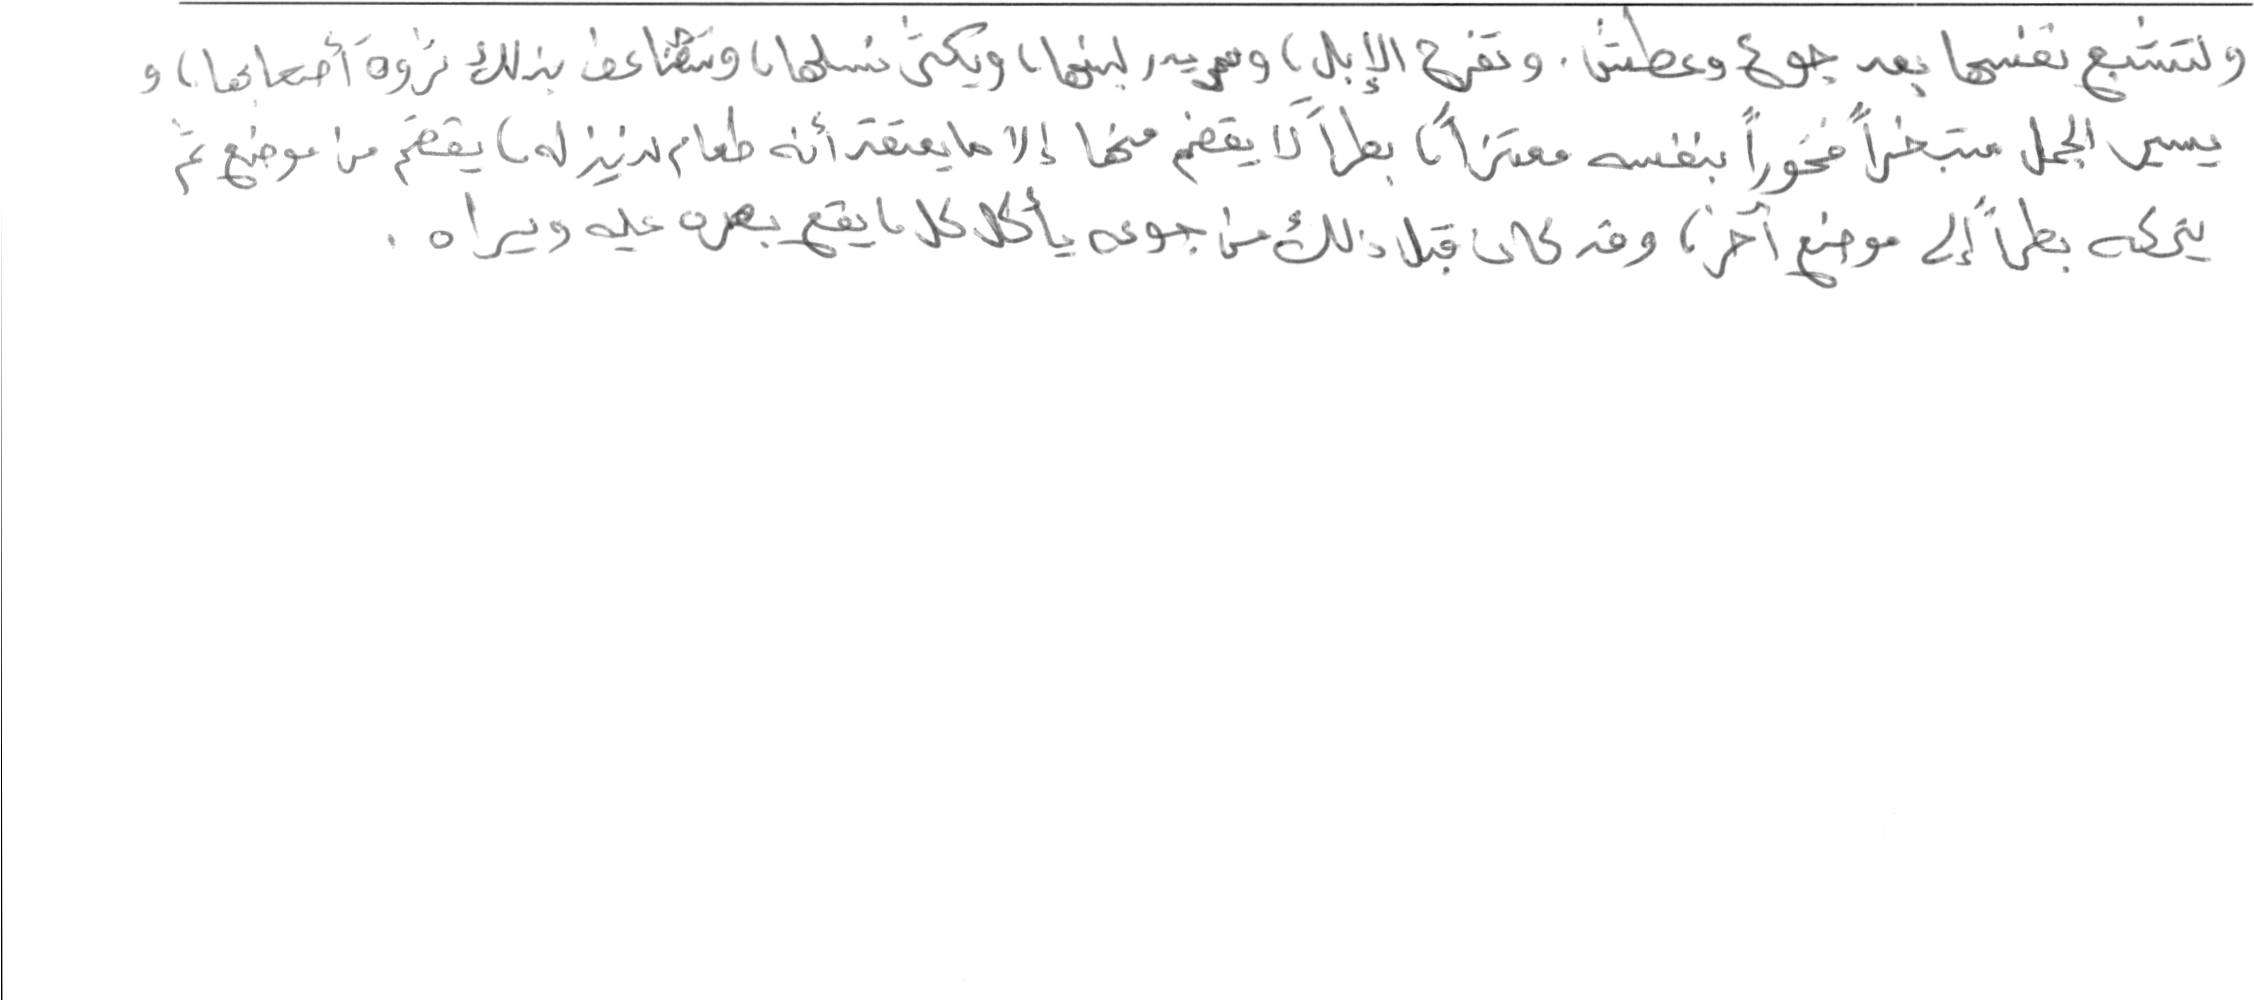 ولتشبع نفسها بعد جوع وعطش. وتفرح الإبل، ويدر لبنها، ويكثر نسلها، وتتضاعف بذلك ثروة أصحابها، و
يسير الجمل متبختراً فخوراً بنفسه معتزاً، بطراً لا يقضم منها إلا ما يعتقد أنه طعام لذيذ له، يقضم من موضع ثم
يتركه بطراً إلى موضع آخر، وقد كان قبل ذلك من جوعه يأكل كل ما يقع بصره عليه ويراه.